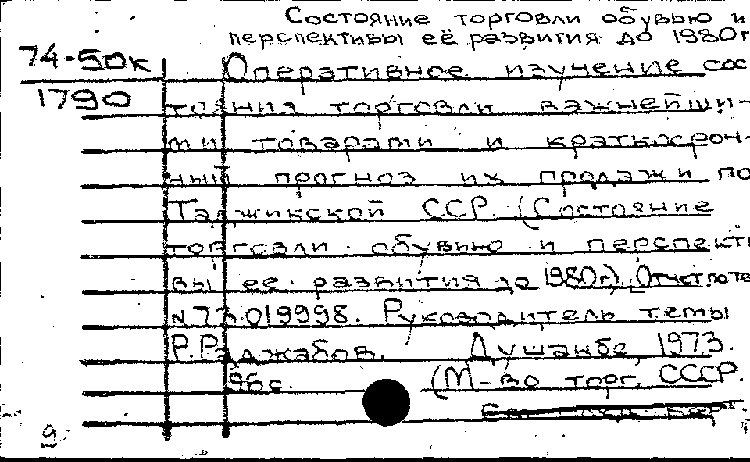 Состояние торговли обувью и
перспективы её развития до 1980г
74-50к
1790
Оперативное изучение сос
тояния торговли важнейши-
ми товарами и краткосроч-
ный прогноз их продажи по
Таджикской ССР. (Состояние
торговли обувью и перспекти
вы ее развития до 1980г.). Отчет по те
N 73019998. Руководитель темы
Р.Раджабов. Душанбе, 1973.
96с. (М-во торг. СССР.
9